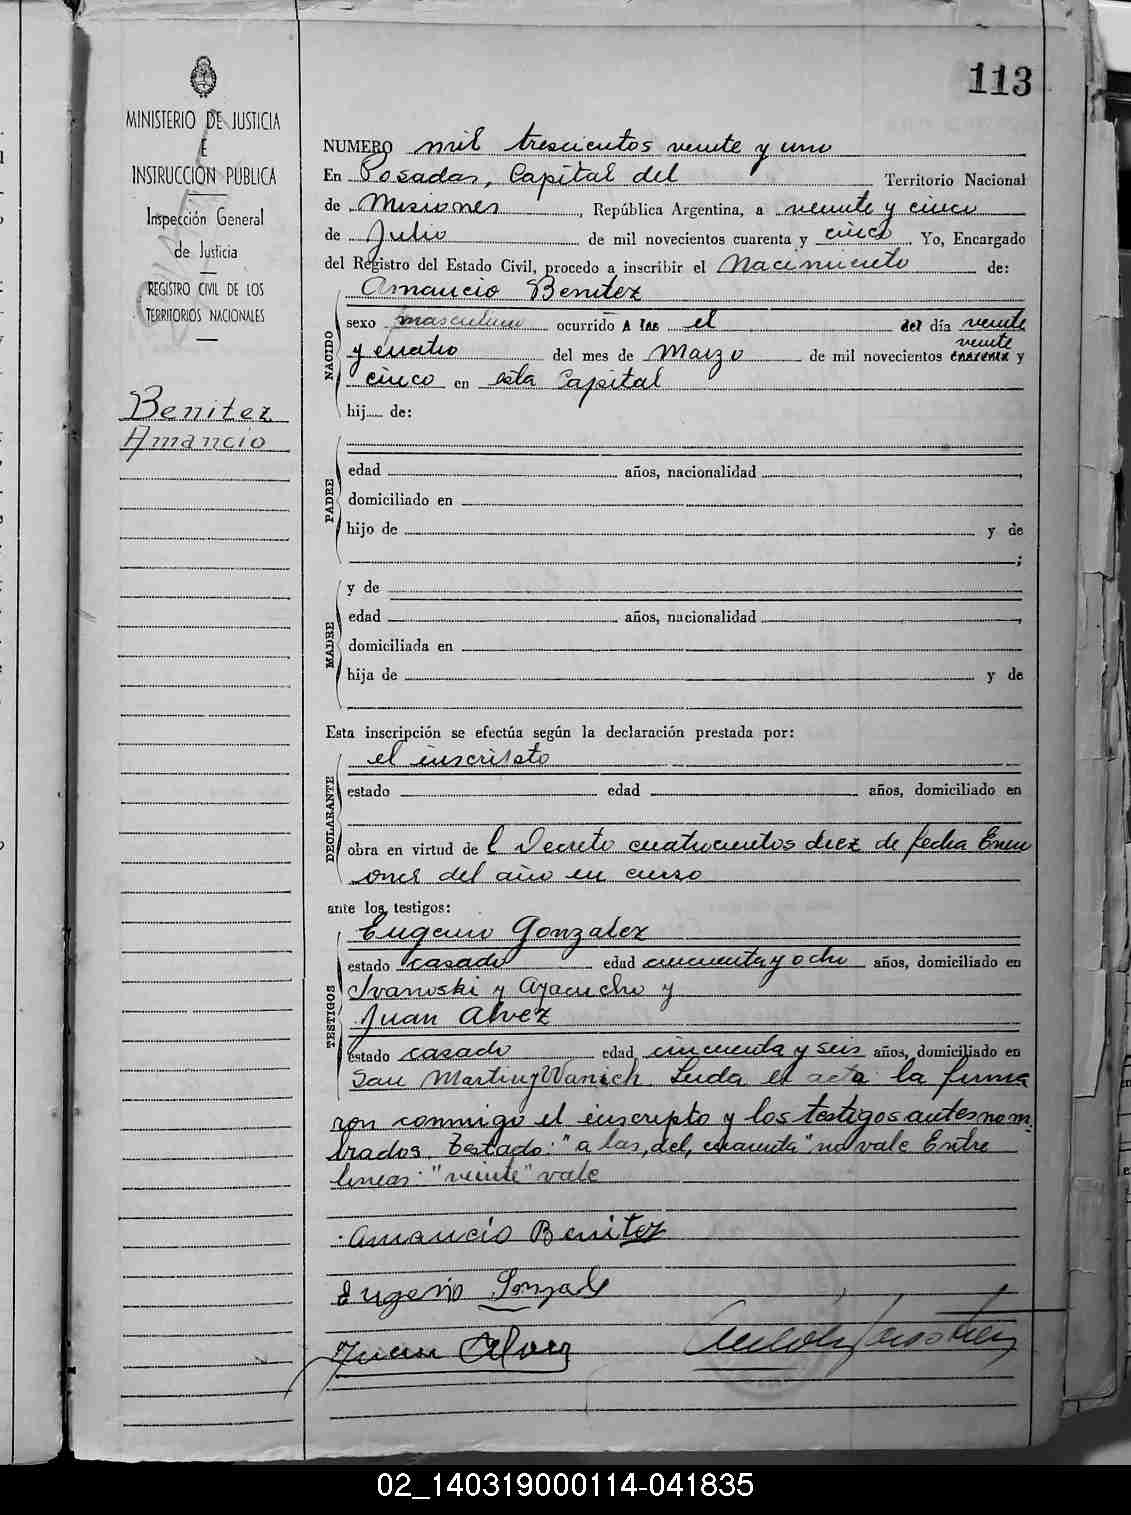 113
MINISTERIO DE JUSTICIA
E
INSTRUCCIÓN PUBLICA
Inspección General
de Justicia
REGISTRO CIVIL DE LOS
TERRITORIOS NACIONALES
Benitez
Amancio
NUMERO mil trescientos veinte y uno
En Posadas, Capital del Territorio Nacional
de Misiones, República Argentina, a veinte y cinco
de Julio de mil novecientos cuarenta y cinco Yo, Encargado
del Registro del Estado Civil, procedo a inscribir el Nacimiento de:
NACIDO
Amancio Benitez
sexo masculino ocurrido A las el del día veinte
veinte
y cuatro del mes de Marzo de mil novecientos cuarenta y
cinco en esta Capital
hij de:
PADRE
edad años, nacionalidad
domiciliado en
hijo de y de
;
MADRE
y de
edad años, nacionalidad
domiciliada en
hija de y de
Esta inscripción se efectúa según la declaración prestada por:
DECLARANTE
el inscripto
estado edad años, domiciliado en
obra en virtud de l Decreto cuatrocientos diez de fecha Enero
once del año en curso
ante los testigos:
TESTIGOS
Eugenio Gonzalez
estado casado edad cincuenta y ocho años, domiciliado en
Ivanoski y Ayacucho y
Juan Alvez
estado casado edad cincuenta y seis años, domiciliado en
San Martin y Wanich. Leida el acta la firma
ron conmigo el inscripto y los testigos antesnom
brados. Testado: "a las, del, cuarenta" no vale Entre
lineas: "veinte" vale
Amancio Benitez
Eugenio Gonzalez
Juan Alvez
02_140319000114-041835